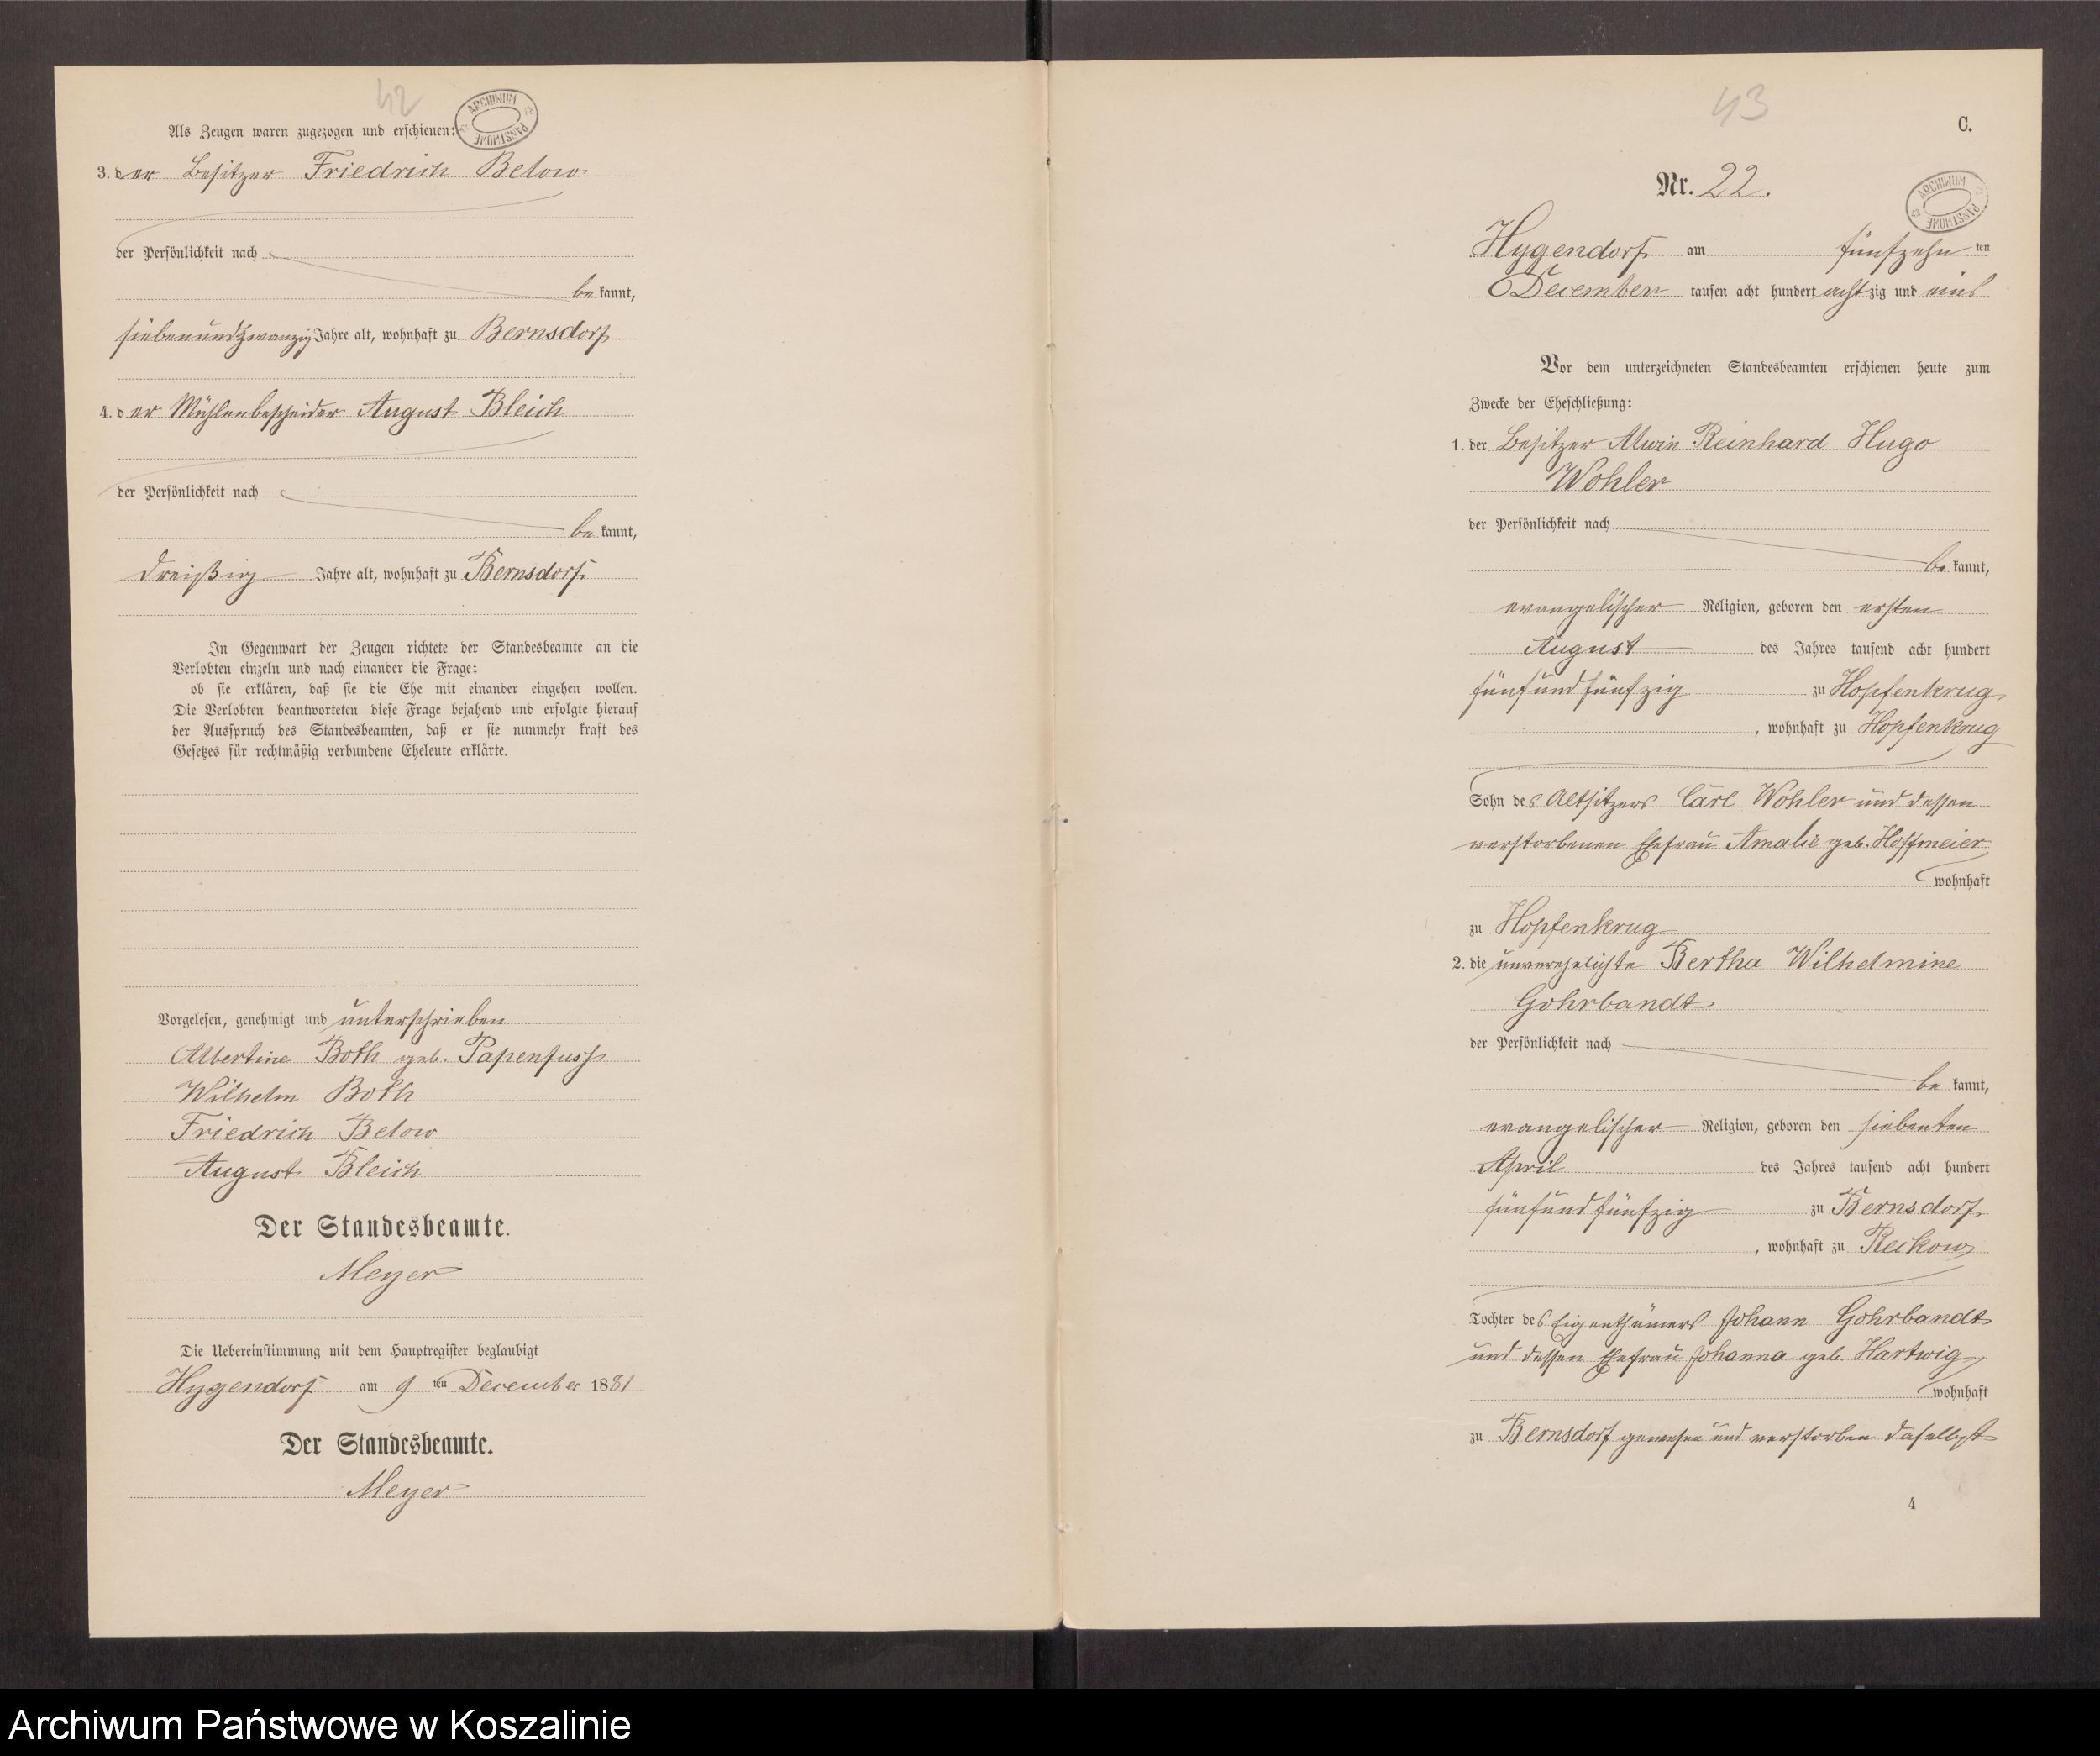 42
ARCHIWUM PAŃSTWOWE
Als Zeugen waren zugezogen und erschienen:
3. der Besitzer Friedrich Below
der Persönlichkeit nach
bekannt,
siebenundzwanzig Jahre alt, wohnhaft zu Bernsdorf
4. der Mühlenbescheider August Bleich
der Persönlichkeit nach
bekannt,
dreißig Jahre alt, wohnhaft zu Bernsdorf
In Gegenwart der Zeugen richtete der Standesbeamte an die
Verlobten einzeln und nach einander die Frage:
ob sie erklären, daß sie die Ehe mit einander eingehen wollen.
Die Verlobten beantworteten diese Frage bejahend und erfolgte hierauf
der Ausspruch des Standesbeamten, daß er sie nunmehr kraft des
Gesetzes für rechtmäßig verbundene Eheleute erklärte.
Vorgelesen, genehmigt und unterschrieben
Albertine Both geb. Papenfuss
Wilhelm Both
Friedrich Below
August Bleich
Der Standesbeamte.
Meyer
Die Uebereinstimmung mit dem Hauptregister beglaubigt
Hygendorf am 9 ten December 1881
Der Standesbeamte.
Meyer
43
C.
Nr. 22.
ARCHIWUM PAŃSTWOWE
Hygendorf am fünfzehn ten
December tausen acht hundert achtzig und eins
Vor dem unterzeichneten Standesbeamten erschienen heute zum
Zwecke der Eheschließung:
1. der Besitzer Alwin Reinhard Hugo
Wohler
der Persönlichkeit nach
bekannt,
evangelischer Religion, geboren den ersten
August des Jahres tausend acht hundert
fünfundfünfzig zu Hopfenkrug,
, wohnhaft zu Hopfenkrug
Sohn des Altsitzers Carl Wohler und dessen
verstorbenen Ehefrau Amalie geb. Hoffmeier
wohnhaft
zu Hopfenkrug
2. die unverehelichte Bertha Wilhelmine
Gohrbandt
der Persönlichkeit nach
bekannt,
evangelischer Religion, geboren den siebenten
April des Jahres tausend acht hundert
fünfundfünfzig zu Bernsdorf
, wohnhaft zu Reikow
Tochter des Eigenthümers Johann Gohrbandt
und dessen Ehefrau Johanna geb. Hartwig,
wohnhaft
zu Bernsdorf gewesen und verstorben daselbst
4
Archiwum Państwowe w Koszalinie